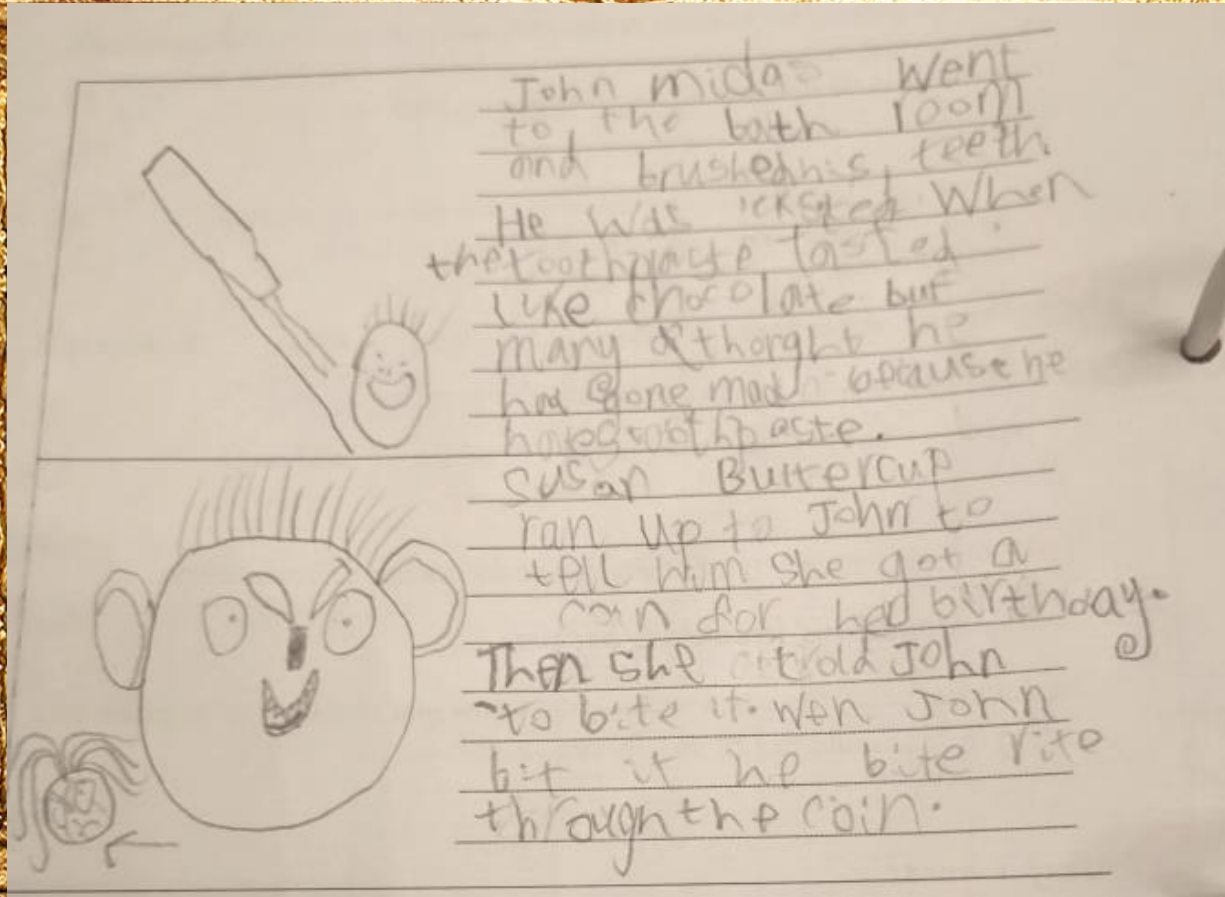 John midas Went
to the bath room
and brushed his teeth.
He was icksited When
the toothpaste tasted
like chocolate but
many thorght he
had gone mad because he
hates toothpaste.
Susan Buttercup
ran up to John to
tell him she got a
coin for hed birthday.
Then she told John
to bite it. wen John
bit it he bite rite
through the coin.